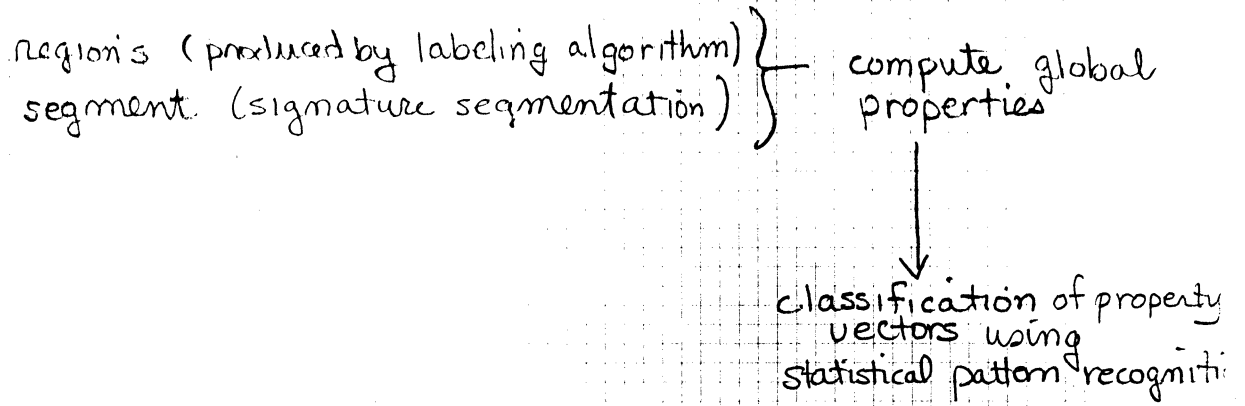 regions (produced by labeling algorithm)
segment. (signature segmentation)
compute global
properties
classification of property
vectors using
statistical pattern recogniti